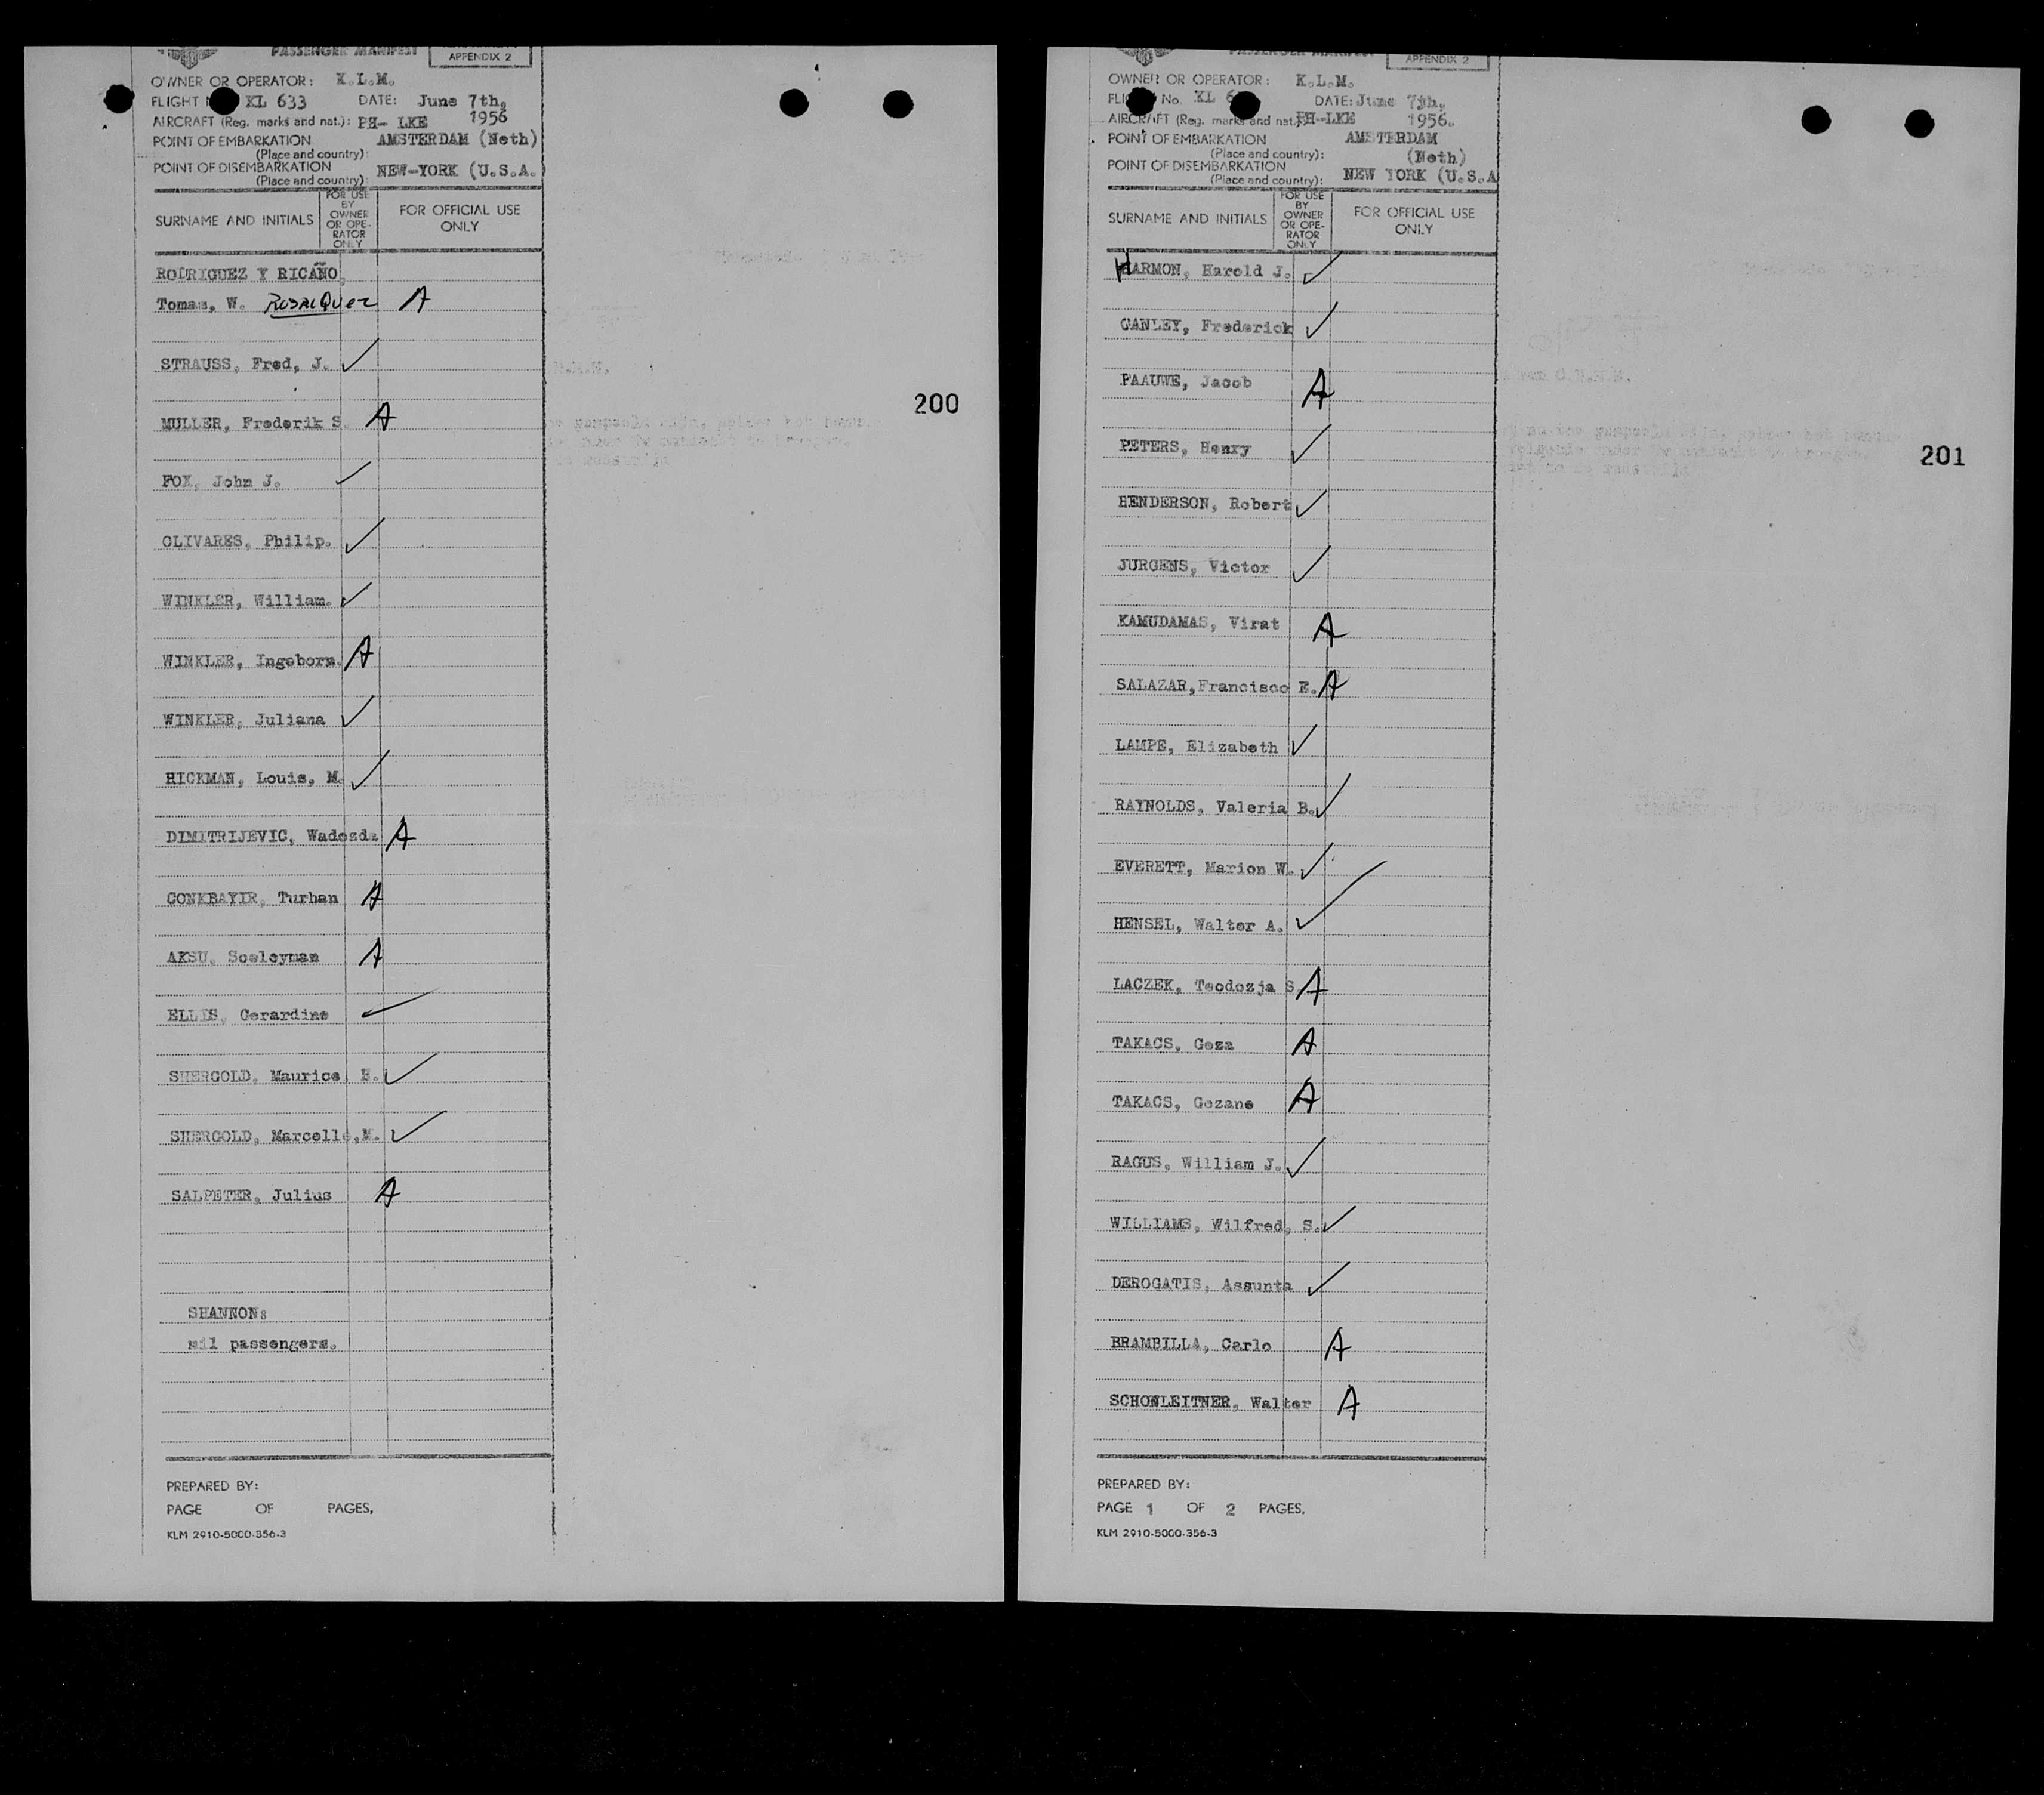 PASSENGER MANIFEST
APPENDIX 2
OWNER OR OPERATOR: K.L.M.
FLIGHT KL 633 DATE: June 7th,
1956
AIRCRAFT (Reg. marks and nat.): PH- LKE
POINT OF EMBARKATION AMSTERDAM (Neth)
(Place and country):
POINT OF DISEMBARKATION NEW-YORK (U.S.A.
(Place and country):
SURNAME AND INITIALS
FOR USE
BY
OWNER
OR OPE-
RATOR
ONLY
FOR OFFICIAL USE
ONLY
RODRIGUEZ Y RICAÑO
Tomas, W. A
STRAUSS, Fred, J. ✓
MULLER, Frederik S. A
FOX, John J. ✓
OLIVARES, Philip. ✓
WINKLER, William. ✓
WINKLER, Ingeborn. A
WINKLER, Juliana ✓
HICKMAN, Louis, M. ✓
DIMITRIJEVIC, Wadozda A
CONKBAYIR, Turhan A
AKSU, Soeleyman A
ELLIS, Gerardine ✓
SHERGOLD, Maurice H. ✓
SHERGOLD, Marcelle,M. ✓
SALPETER, Julius A
SHANNON:
nil passengers.
PREPARED BY:
PAGE OF PAGES,
KLM 2910-5000-356-3
200
PASSENGER MANIFEST
APPENDIX 2
OWNER OR OPERATOR: K.L.M.
FLIGHT No. KL DATE: June 7th,
AIRCRAFT (Reg. marks and nat.): PH-LKE 1956.
POINT OF EMBARKATION AMSTERDAM
(Place and country): (Neth)
POINT OF DISEMBARKATION
(Place and country): NEW YORK (U.S.A
SURNAME AND INITIALS
FOR USE
BY
OWNER
OR OPE-
RATOR
ONLY
FOR OFFICIAL USE
ONLY
HARMON, Harold J. ✓
GANLEY, Frederick ✓
PAAUWE, Jacob A
PETERS, Henry ✓
HENDERSON, Robert ✓
JURGENS, Victor ✓
KAMUDAMAS, Virat A
SALAZAR,Francisco E. A
LAMPE, Elizabeth ✓
RAYNOLDS, Valeria B. ✓
EVERETT, Marion W. ✓
HENSEL, Walter A. ✓
LACZEK, Teodozja S. A
TAKACS, Geza A
TAKACS, Gezane A
RAGUS, William J. ✓
WILLIAMS, Wilfred, S. ✓
DEROGATIS, Assunta ✓
BRAMBILLA, Carlo A
SCHONLEITNER, Walter A
PREPARED BY:
PAGE 1 OF 2 PAGES,
KLM 2910-5000-356-3
201